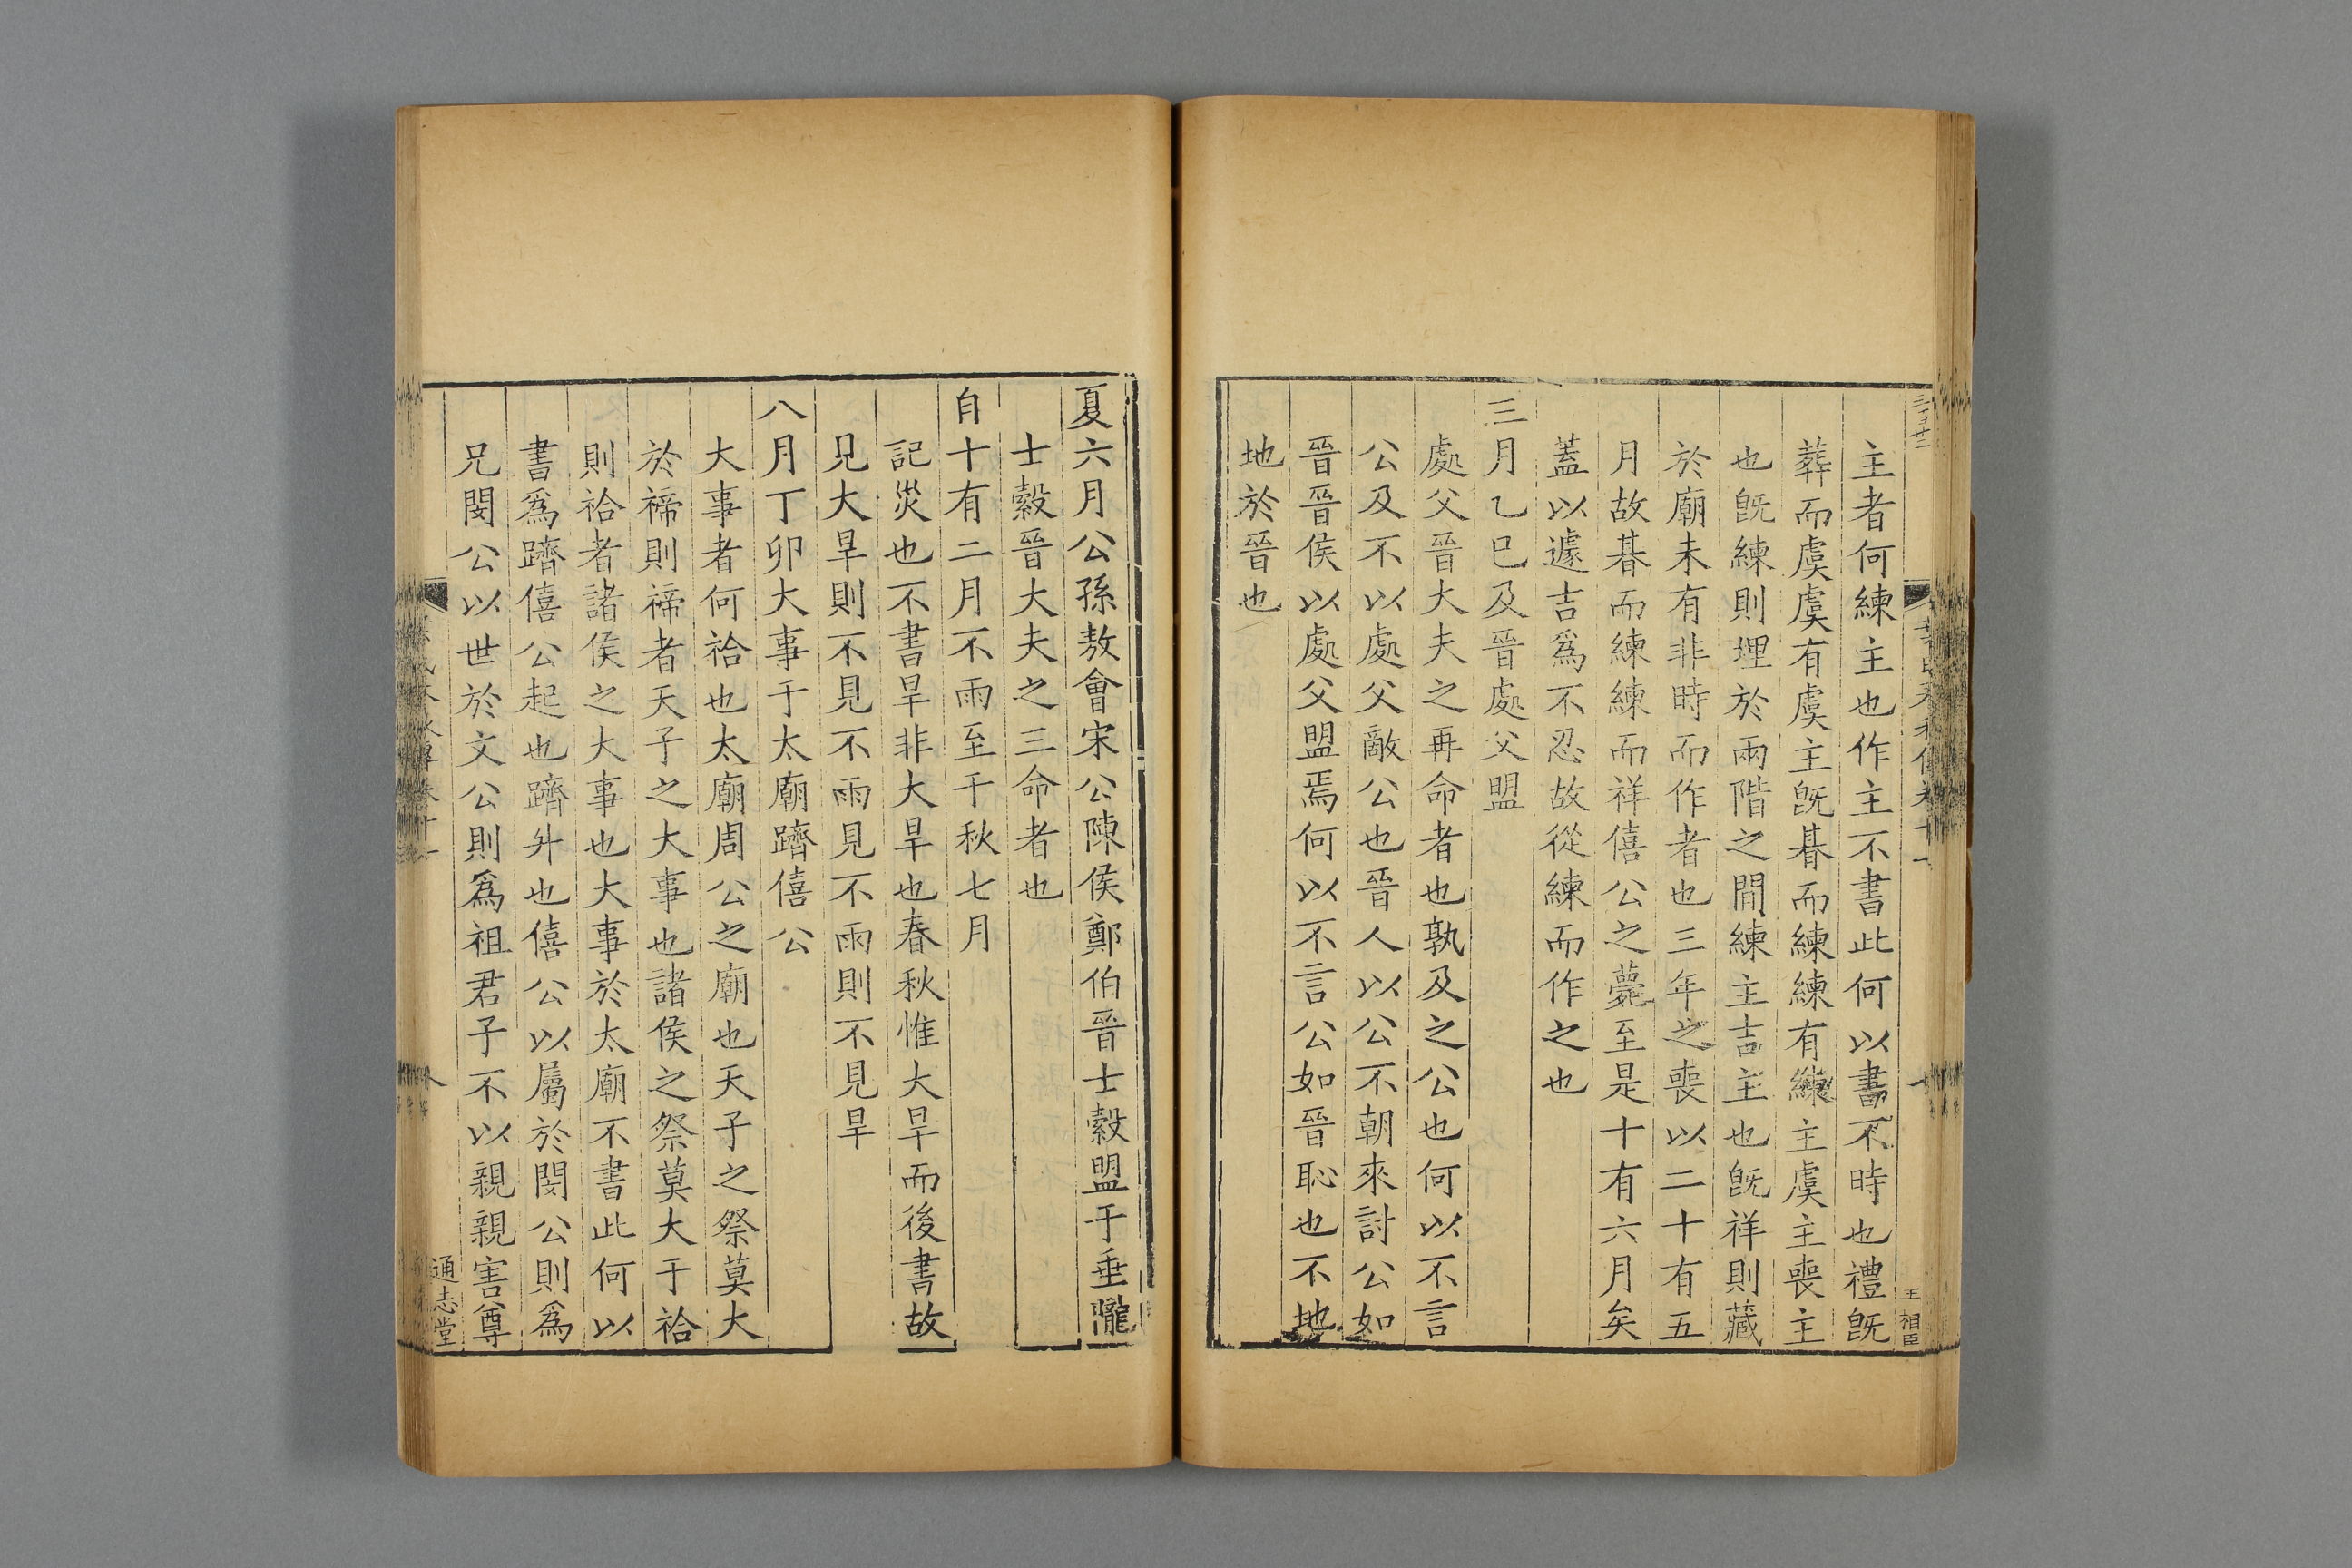 三百廿二
王相臣
主者何練主也作主不書此何以書不時也禮旣
葬而虞虞有虞主旣朞而練練有練主虞主喪主
也旣練則埋於兩階之間練主吉主也旣祥則藏
於廟未有非時而作者也三年之喪以二十有五
月故朞而練練而祥僖公之薨至是十有六月矣
蓋以遽吉爲不忍故從練而作之也
三月乙巳及晉處父盟
處父晉大夫之再命者也孰及之公也何以不言
公及不以處父敵公也晉人以公不朝來討公如
晉晉侯以處父盟焉何以不言公如晉恥也不地
地於晉也
夏六月公孫敖會宋公陳侯鄭伯晉士縠盟于垂隴
士縠晉大夫之三命者也
自十有二月不雨至于秋七月
記災也不書旱非大旱也春秋惟大旱而後書故
見大旱則不見不雨見不雨則不見旱
八月丁卯大事于太廟躋僖公
大事者何祫也太廟周公之廟也天子之祭莫大
於禘則禘者天子之大事也諸侯之祭莫大于祫
則祫者諸侯之大事也大事於太廟不書此何以
書爲躋僖公起也躋升也僖公以屬於閔公則爲
兄閔公以世於文公則爲祖君子不以親親害尊
通志堂